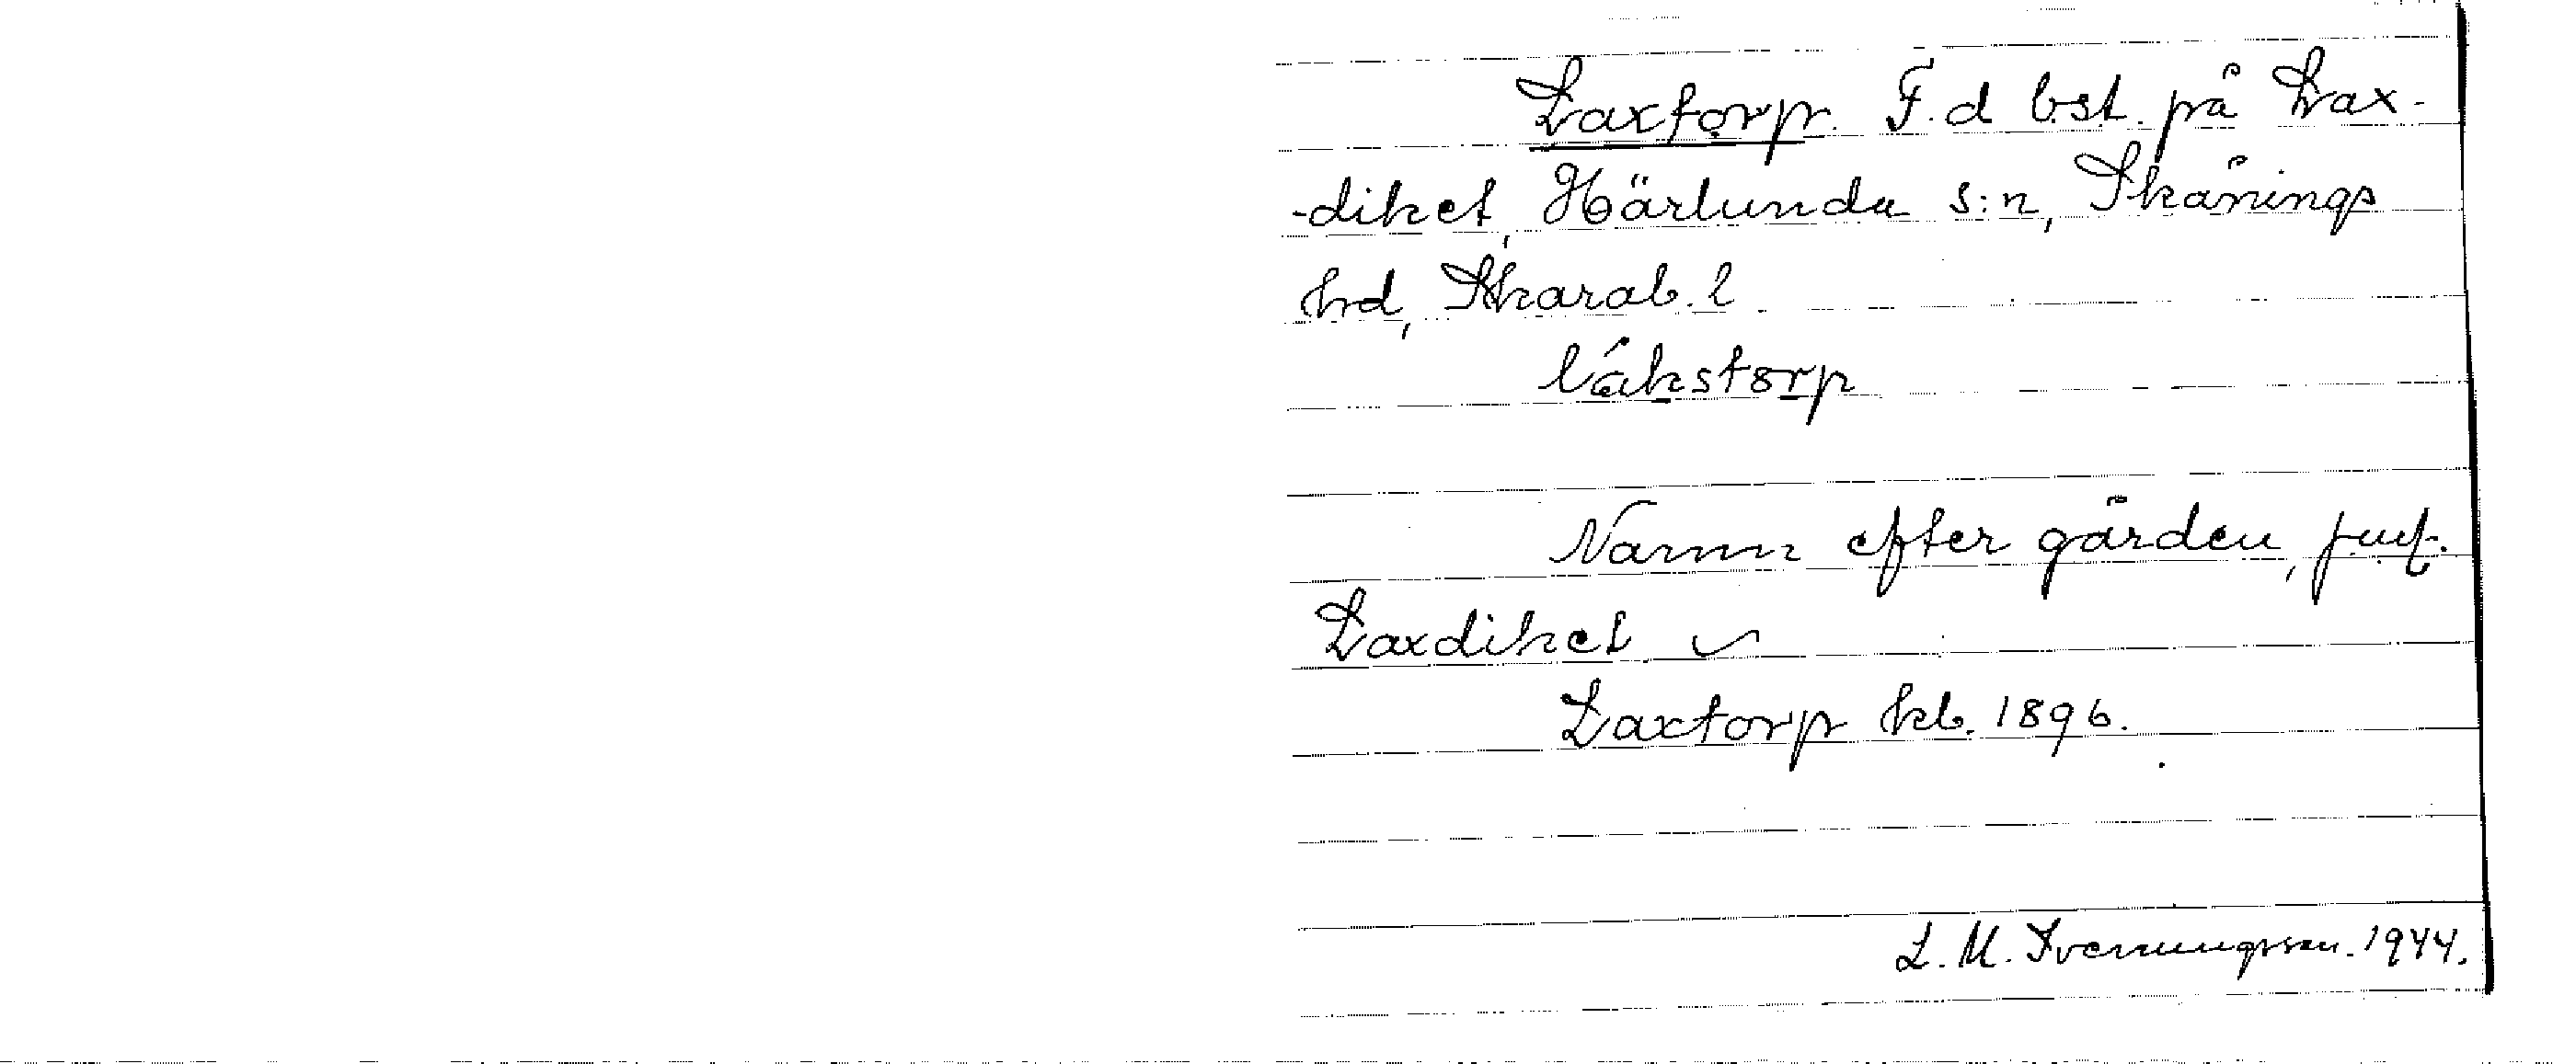 Laxtorp. F.d bst. på Lax-
-diket, Härlunda s:n, Skånings
hd, Skarab. l
lákstorp
Namn efter gården, jmf.
Laxdiket
Laxtorp kb. 1896.
L. M. Svenungsson. 1944.